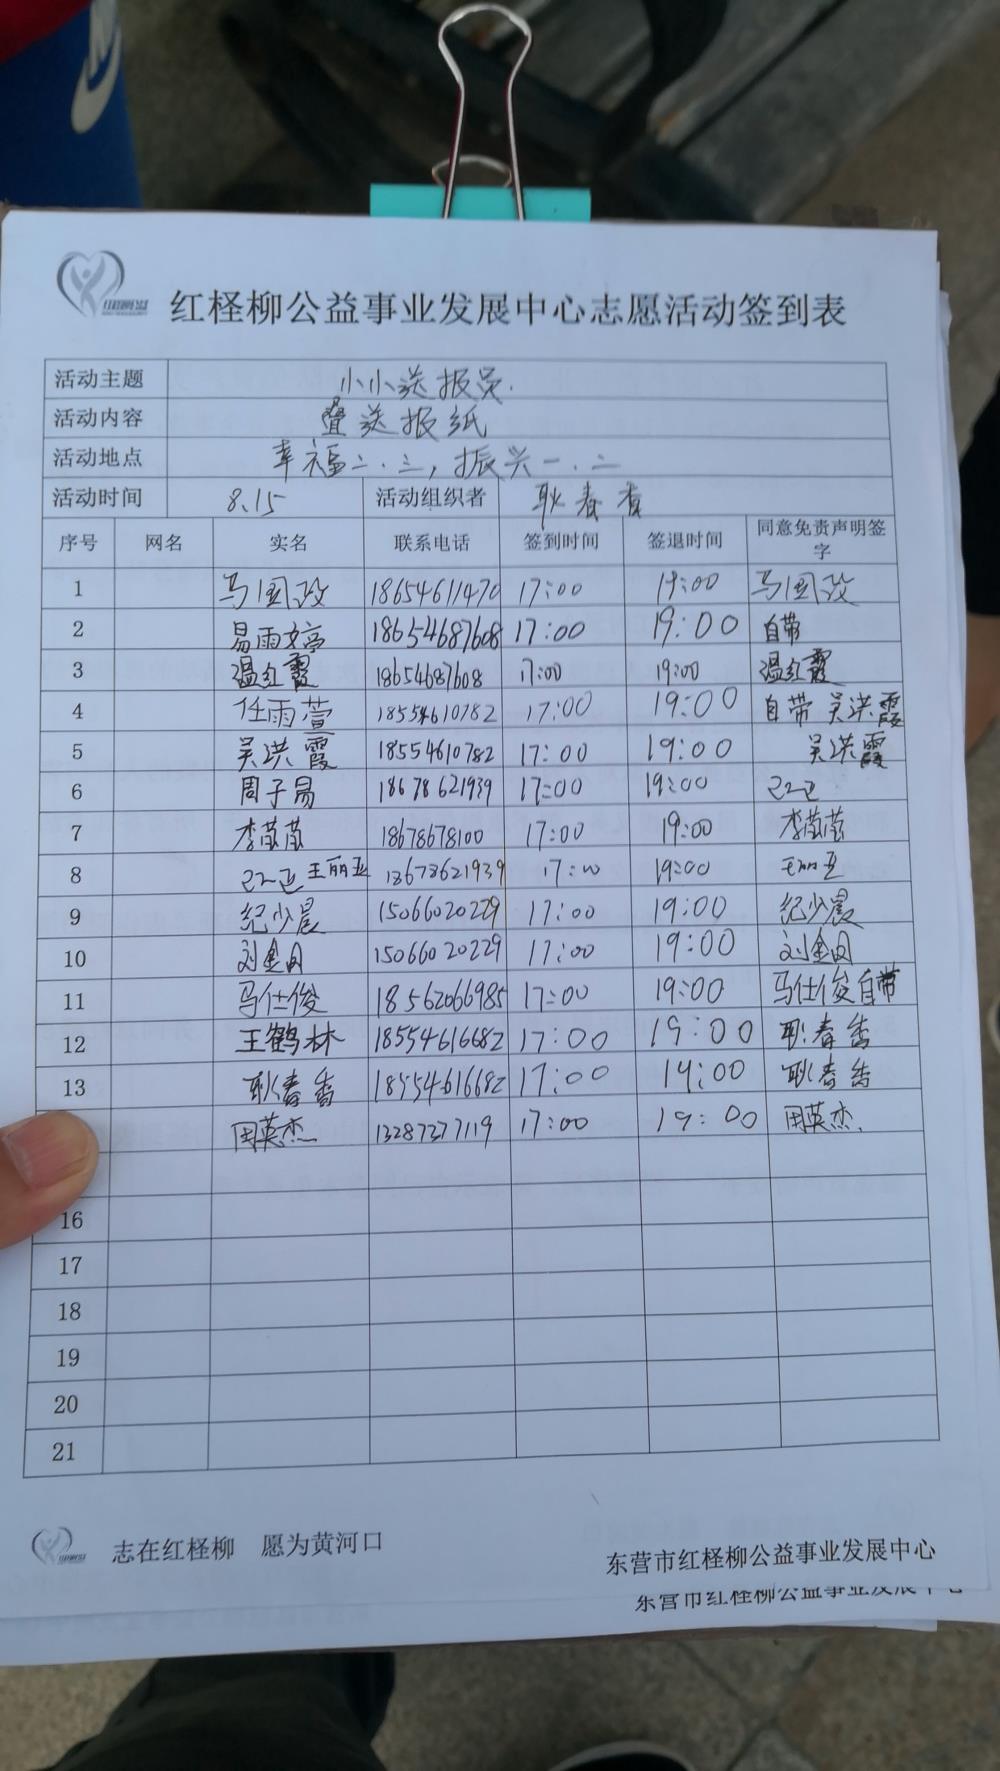 红柽柳公益事业发展中心志愿活动签到表
活动主题 小小送报员.
活动内容 叠送报纸
活动地点 幸福二.三,振兴一.二
活动时间 8.15 活动组织者 耿春香
序号 网名 实名 联系电话 签到时间 签退时间 同意免责声明签字
1 马国政 18654611470 17:00 19:00 马国政
2 易雨婷 18654687608 17:00 19:00 自带
3 温红霞 18654687608 17:00 19:00 温红霞
4 任雨萱 18554610782 17:00 19:00 自带 吴洪霞
5 吴洪霞 18554610782 17:00 19:00 吴洪霞
6 周子易 18678621939 17:00 19:00
7 李苗苗 18678678100 17:00 19:00 李苗苗
8 王丽亚 18678621939 17:00 19:00 王丽亚
9 纪少晨 15066020229 17:00 19:00 纪少晨
10 刘金凤 15066020229 17:00 19:00 刘金凤
11 马仕俊 18562066985 17:00 19:00 马仕俊自带
12 王鹤林 18554616682 17:00 19:00 耿春香
13 耿春香 18554616682 17:00 19:00 耿春香
周英杰 13287377119 17:00 19:00 周英杰.
16
17
18
19
20
21
志在红柽柳 愿为黄河口
东营市红柽柳公益事业发展中心
东营市红柽柳公益事业发展中心